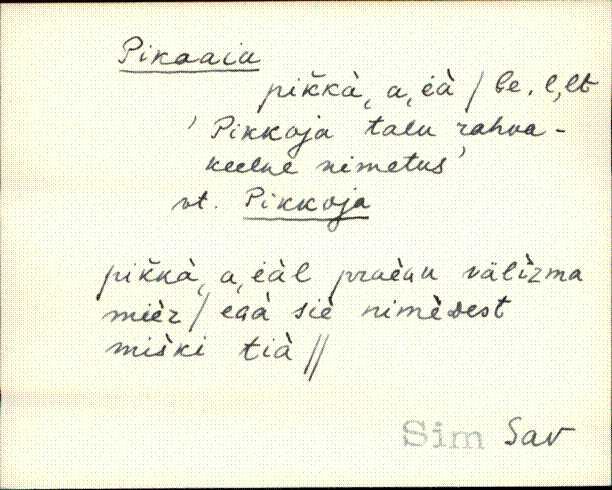 Pikaaia
pik̆kà, a, èà / le, l, lt
' Pikkoja talu rahva-
keelne nimetus '
vt. Pikkoja
pik̆kà, a, èàl praèau välìzma
mièr / egà siè nimèdest
miski tià //
Sim Sav